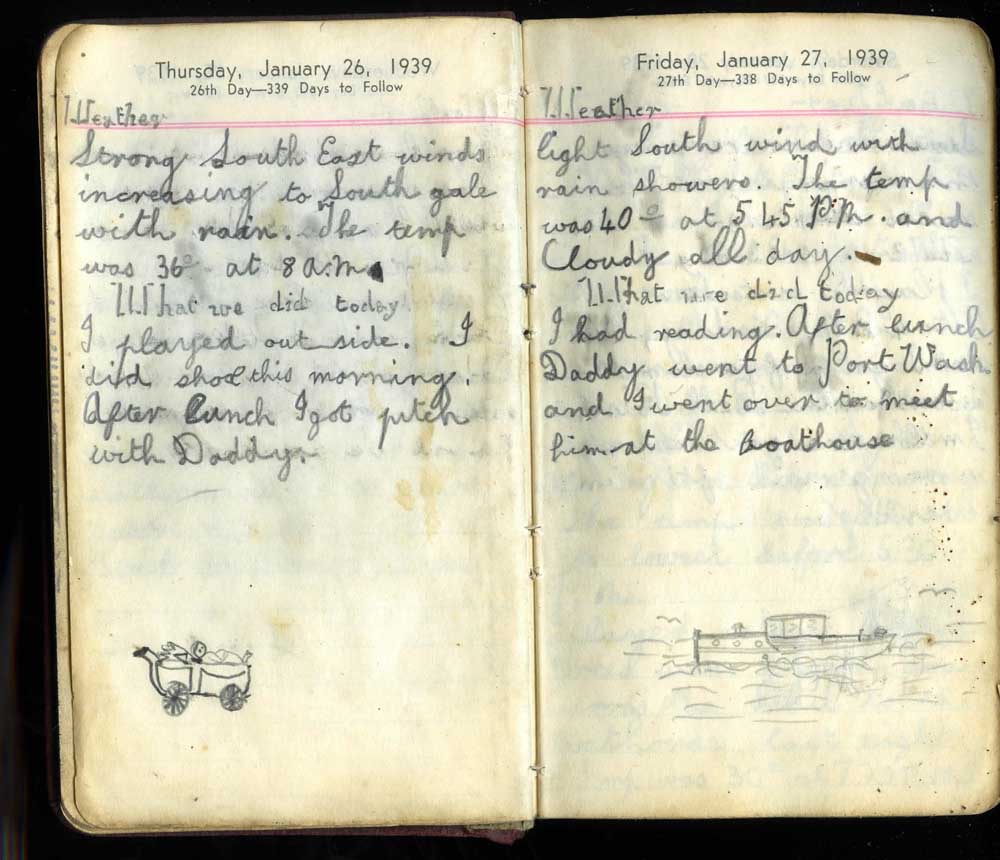 Thursday, January 26, 1939
26th Day—339 Days to Follow
Weather
Strong South East winds
increasing to South gale
with rain. The temp
was 36° at 8 A.M.
What we did today
I played out side. I
did shool this morning.
After Lunch I got pitch
with Daddy.
Friday, January 27, 1939
27th Day—338 Days to Follow
Weather
light South wind with
rain showers. The temp
was 40° at 5 45 P.M. and
Cloudy all day.
What we did today
I had reading. After lunch
Daddy went to Port Wash.
and I went over to meet
him at the boathouse